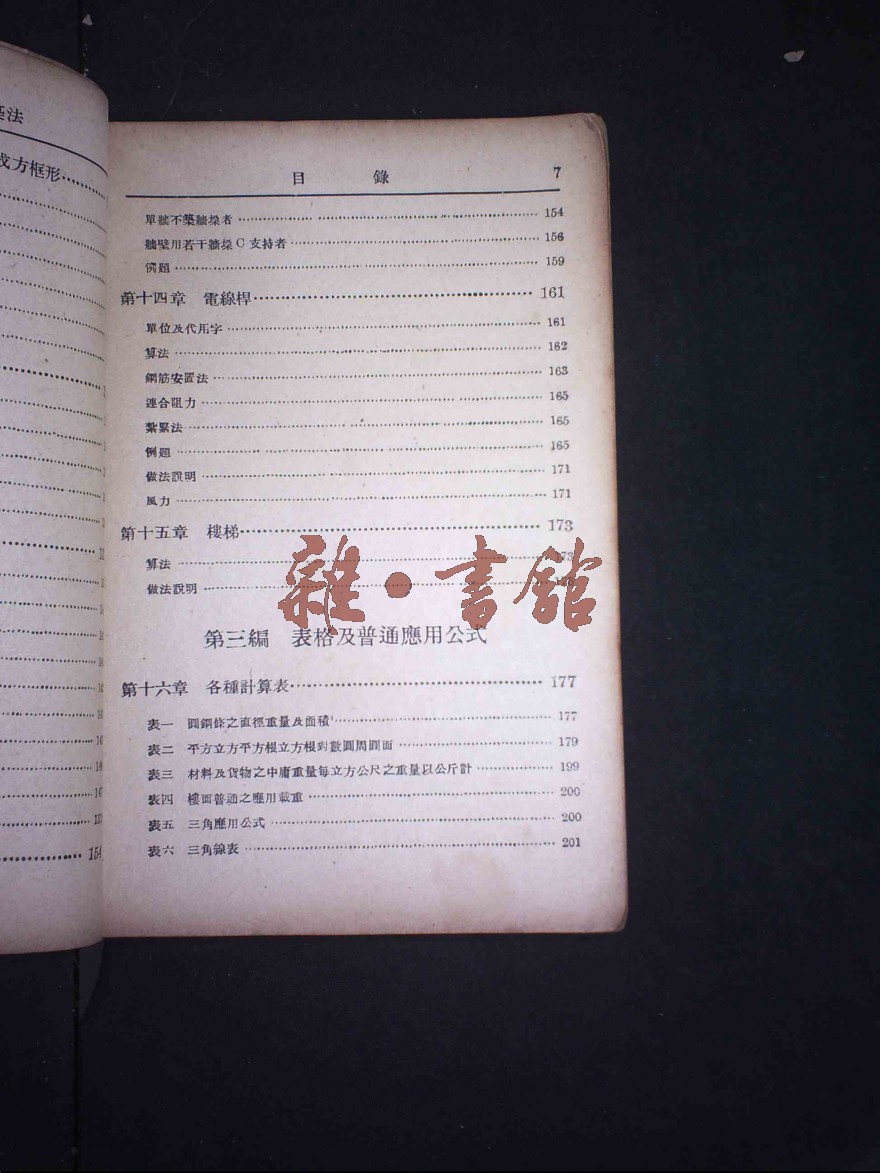 法
方框形
154
目 錄 7
單牆不築牆垜者 154
牆壁用若干牆垜C支持者 156
例題 159
第十四章 電線桿 161
單位及代用字 161
算法 162
鋼筋安置法 163
連合阻力 165
紮緊法 165
例題 165
做法說明 171
風力 171
第十五章 樓梯 173
算法 173
做法說明
雜·書館
第三編 表格及普通應用公式
第十六章 各種計算表 177
表一 圓鋼條之直徑重量及面積 177
表二 平方立方平方根立方根對數圓周圓面 179
表三 材料及貨物之中庸重量每立方公尺之重量以公斤計 199
表四 樓面普通之應用載重 200
表五 三角應用公式 200
表六 三角線表 201